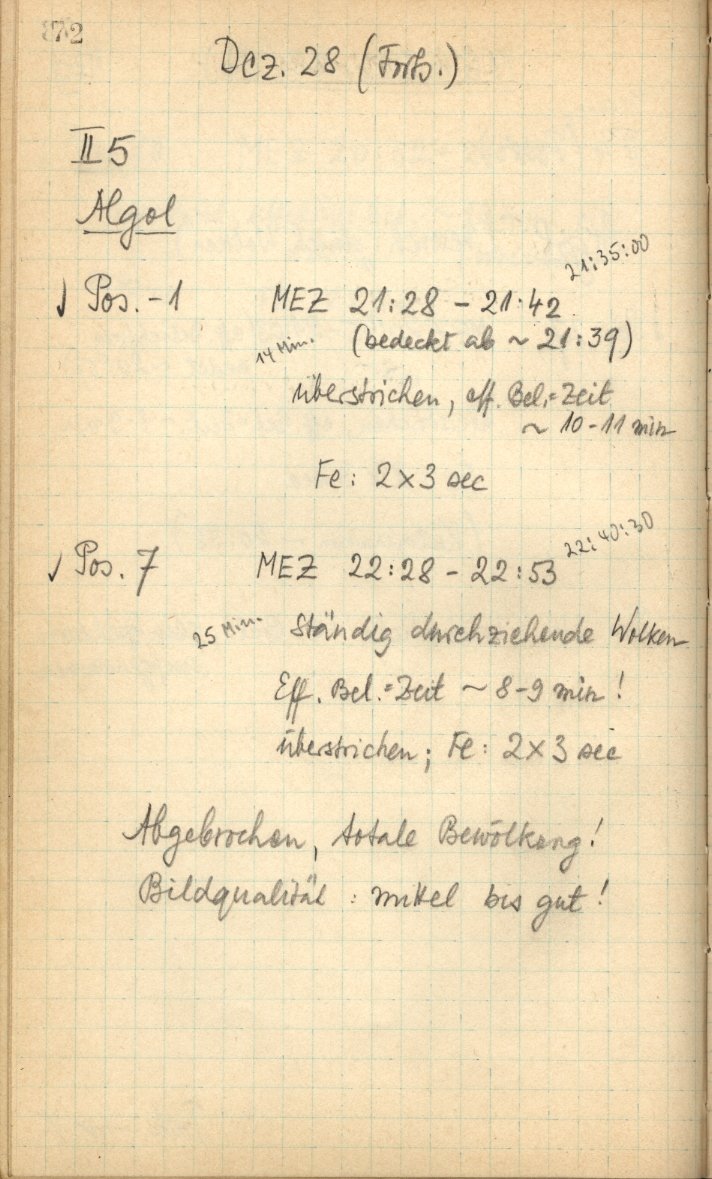 372
Dez. 28 (Forts.)
II 5
Algol
√ Pos. -1 MEZ 21:28 - 21:42 21:35:00
14 Min. (bedeckt ab ~ 21:39)
überstrichen, eff. Bel.=Zeit
~ 10-11 min
Fe: 2×3 sec
√ Pos. 7 MEZ 22:28 - 22:53 22:40:30
25 Min. Ständig durchziehende Wolken
Eff. Bel.=Zeit ~ 8-9 min!
überstrichen; Fe: 2×3 sec
Abgebrochen, totale Bewölkung!
Bildqualität: mittel bis gut!